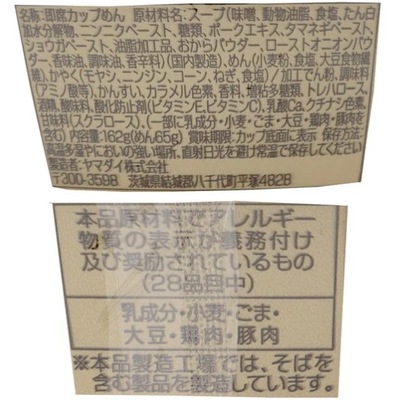 名称:即席カップめん 原材料名:スープ(味噌、動物油脂、食塩、たん白
加水分解物、ニンニクペースト、糖類、ポークエキス、タマネギペースト、
ショウガペースト、油脂加工品、おからパウダー、ローストオニオンパウダ
ー、香味油、調味油、香辛料)(国内製造)、めん(小麦粉、食塩、大豆食物繊
維)、かやく(モヤシ、ニンジン、コーン、ねぎ、食塩)/加工でん粉、調味料
(アミノ酸等)、かんすい、カラメル色素、香料、増粘多糖類、トレハロース、
酒精、酸味料、酸化防止剤(ビタミンE、ビタミンC)、乳酸Ca、クチナシ色素、
甘味料(スクラロース)、(一部に乳成分・小麦・ごま・大豆・鶏肉・豚肉を
含む) 内容量:162g(めん65g) 賞味期限:カップ底面に表示 保存方法:
高温多湿やにおいの強い場所、直射日光を避け常温で保存してください
製造者:ヤマダイ株式会社
〒300-3598 茨城県結城郡八千代町平塚4828
本品原材料でアレルギー
物質の表示が義務付け
及び奨励されているもの
(28品目中)
乳成分・小麦・ごま・
大豆・鶏肉・豚肉
※本品製造工場では、そばを
含む製品を製造しています。